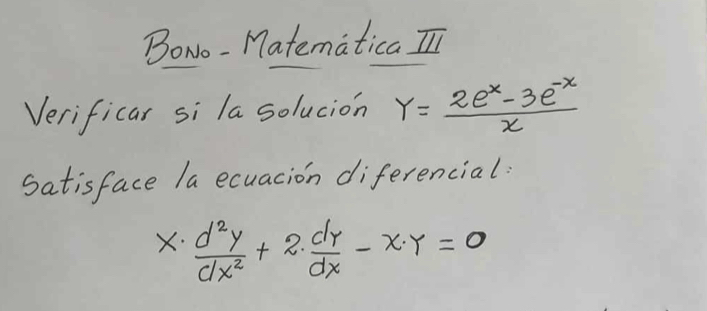 Bono - Matemática III
Verificar si la solución Y = \frac{2e^x - 3e^{-x}}{x}
Satisface la ecuación diferencial:
x \cdot \frac{d^2y}{dx^2} + 2 \cdot \frac{dy}{dx} - x \cdot y = 0